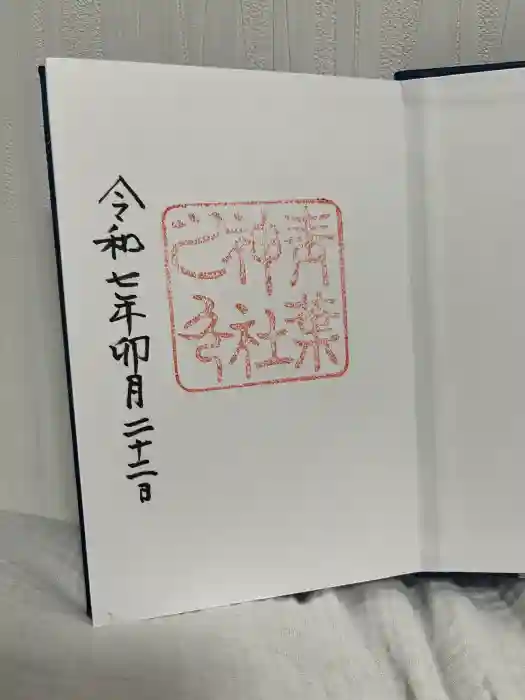 青葉
神社
之印
令和七年卯月二十二日